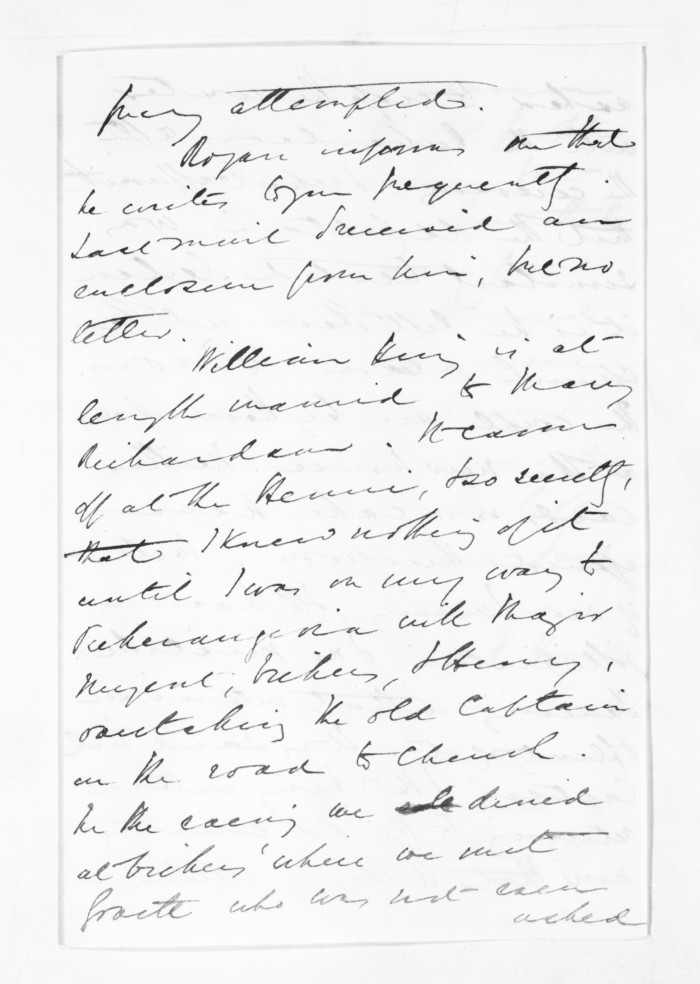 being attempted.
Rogan informs me that
he writes to you frequently.
Last mail I received an
enclosure from him, but no
letter.
William King is at
length married to Mary
Richardson. It came
off at the Henui, & so secretly,
that I knew nothing of it
until I was on my way to
with Major
Nugent, & Henry,
overtaking the old Captain
on the road to Church.
In the evening we dined
at where we met
who was not even
asked